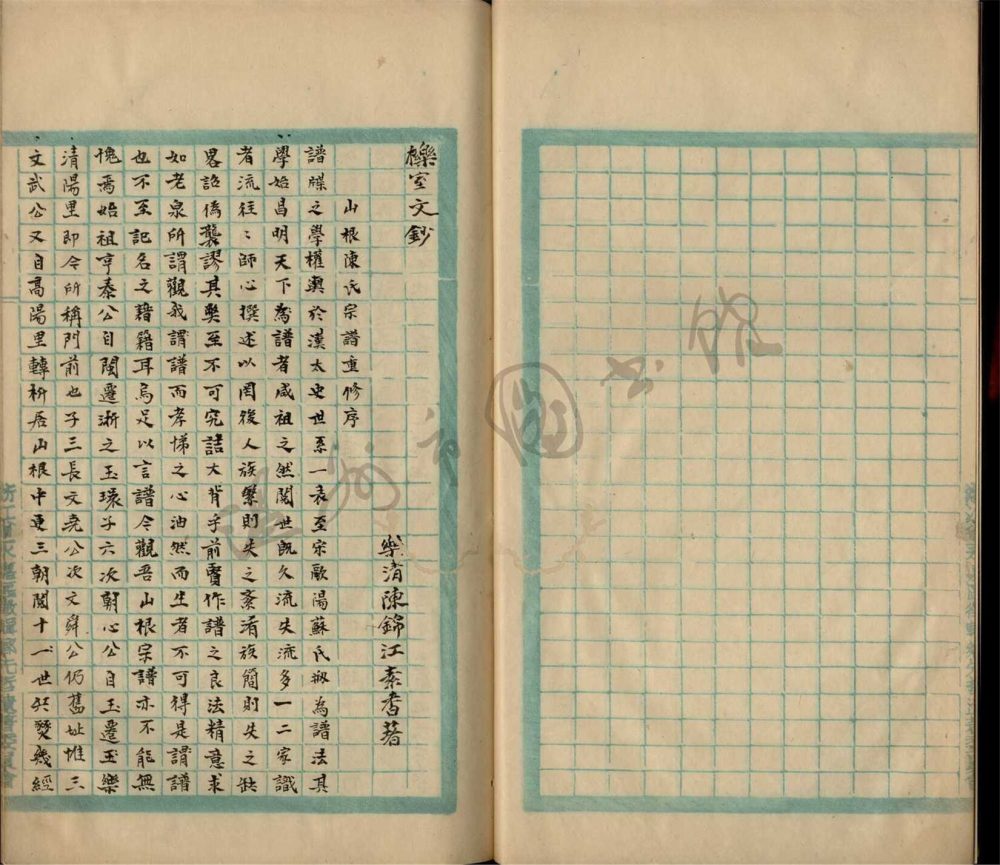 櫟室文鈔
樂清陳錦江素香著
山根陳氏宗譜重修序
譜牒之學權輿於漢太史世系一表至宋歐陽蘇氏刱為譜法其
學始昌明天下為譜者咸祖之然閱世既久流失流多一二家識
者流往〻師心撰述以罔後人族繁則失之紊淆族簡則失之缺
畧詒偽襲謬其獘至不可究詰大背乎前賢作譜之良法精意求
如老泉所謂觀我謂譜而孝悌之心油然而生者不可得是謂譜
也不至記名之藉籍耳烏足以言譜今觀吾山根宗譜亦不能無
愧焉始祖亨泰公自閩遷浙之玉環子六次朝心公自玉遷玉樂
清陽里即今所稱門前也子三長文堯公次文舜公仍舊址惟三
文武公又自高陽里轉析居山根中更三朝閱十一世兵燹幾經